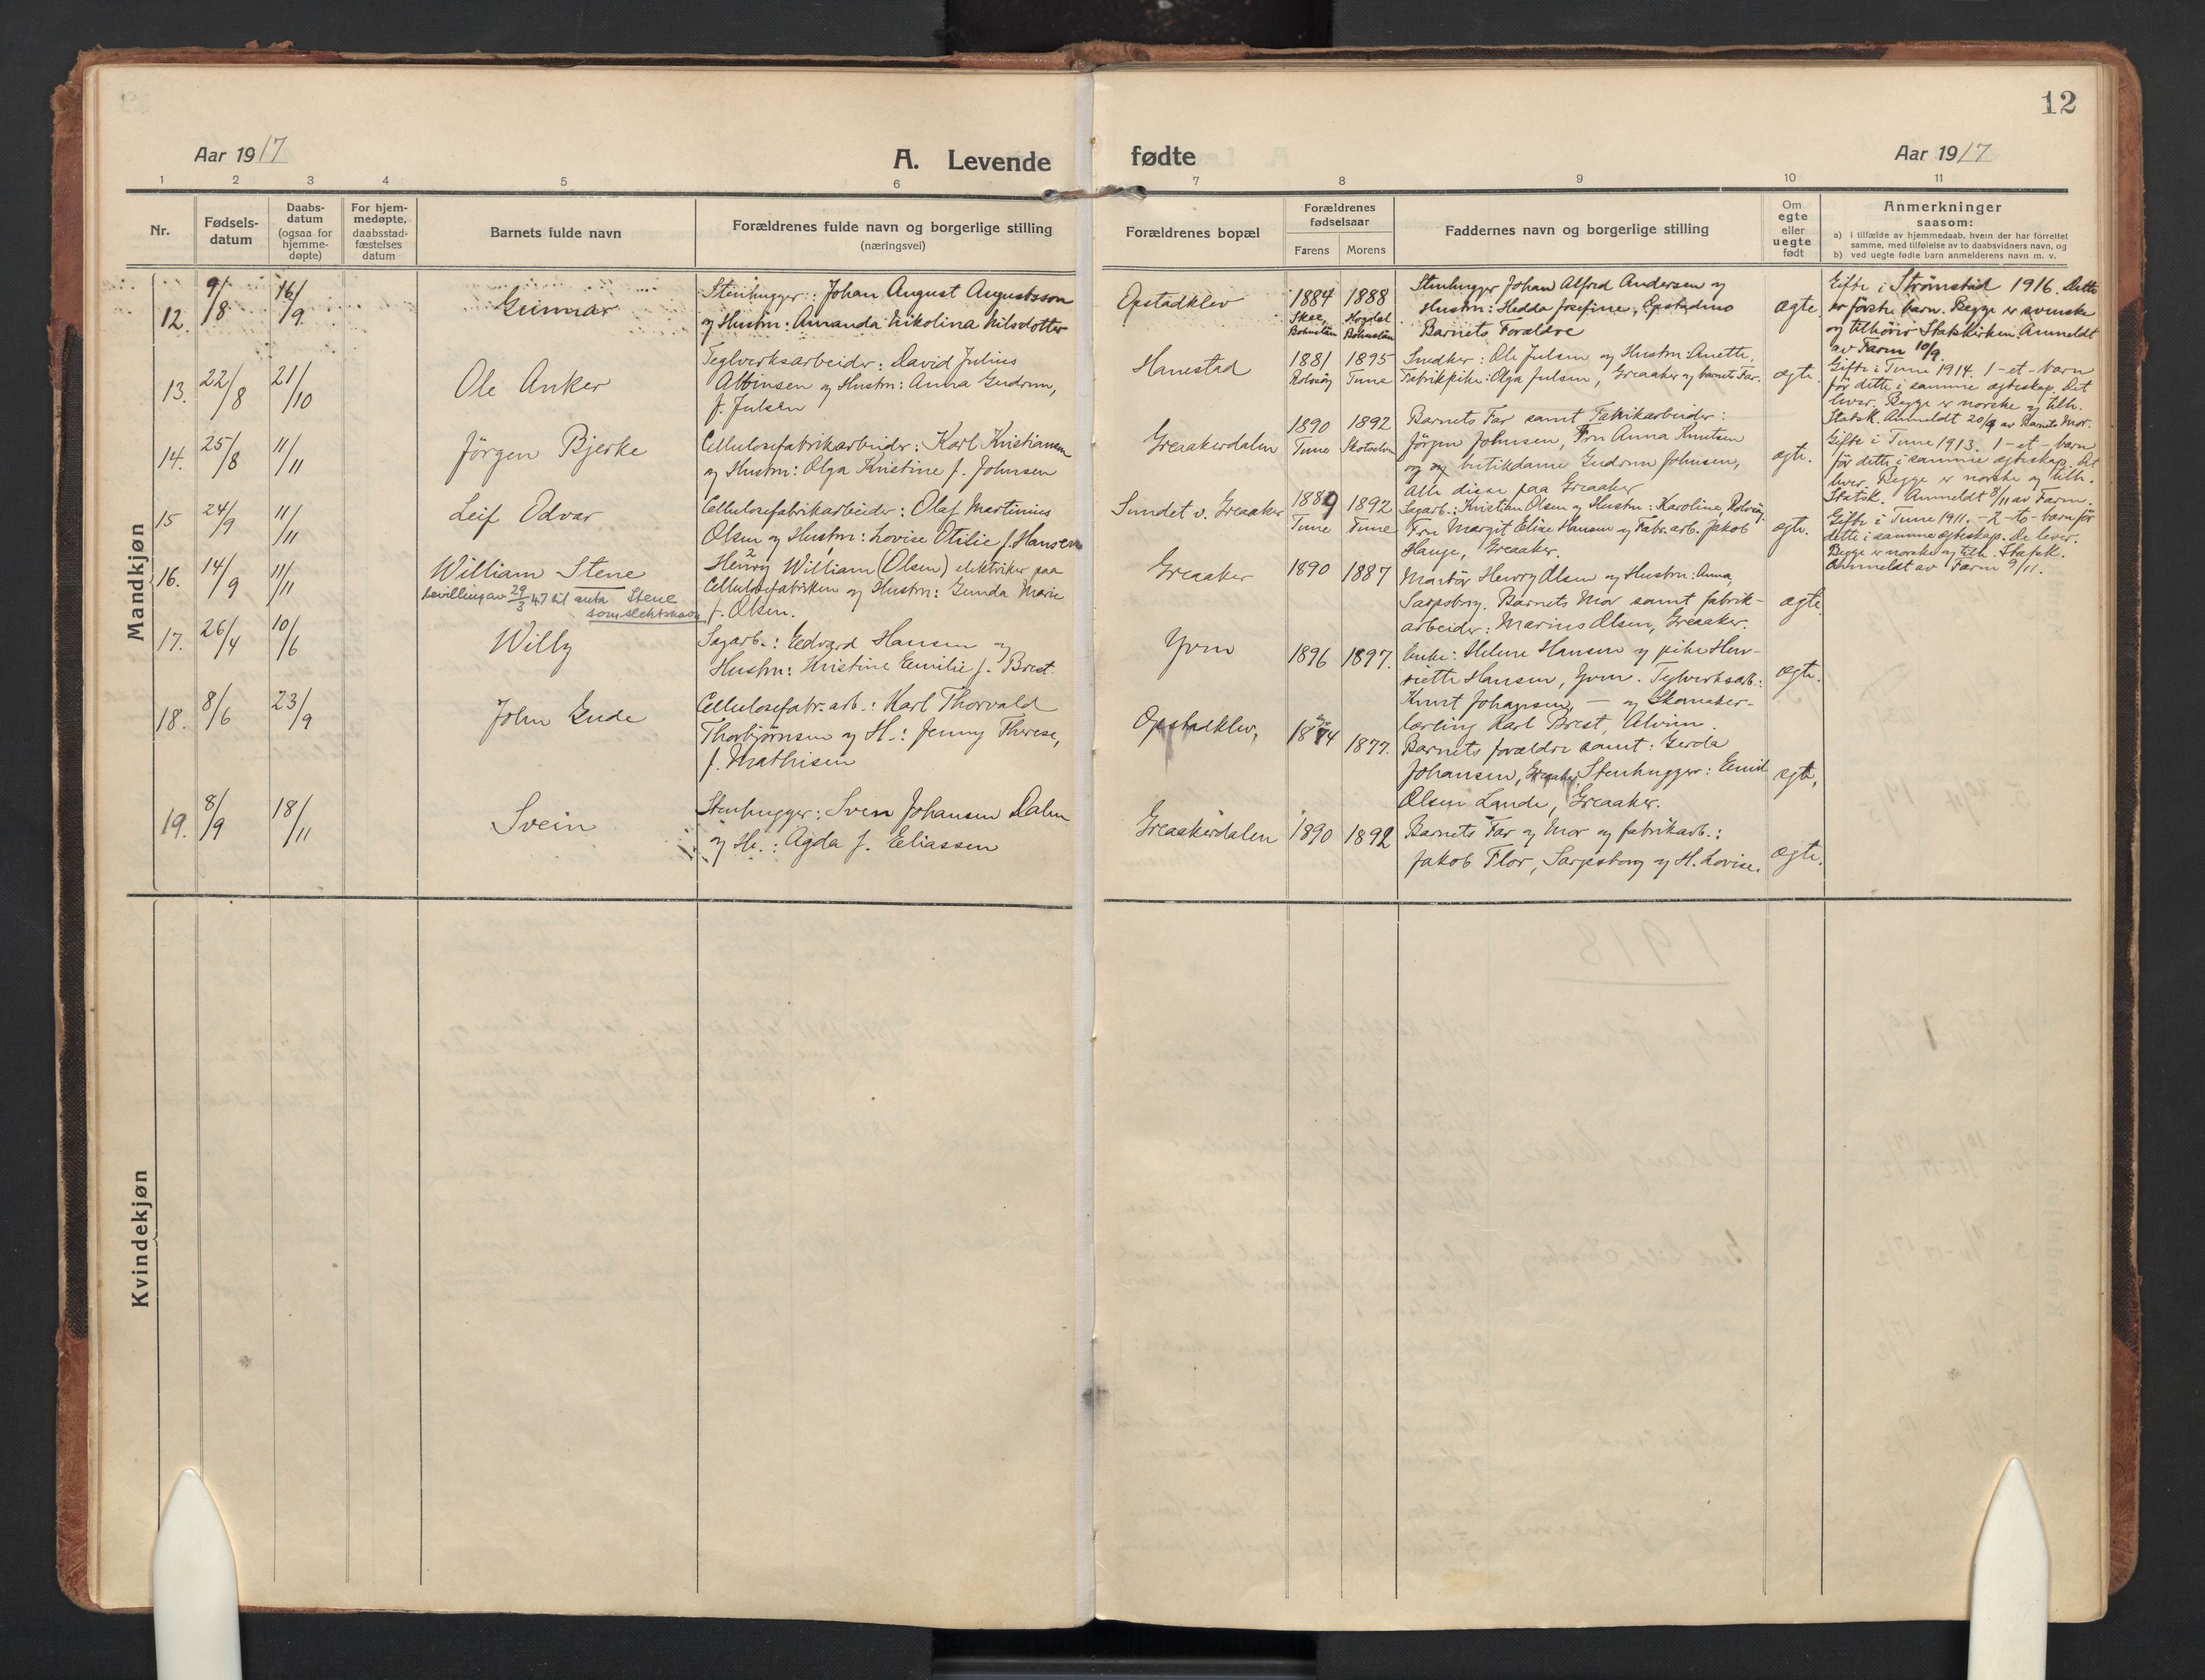 12
Aar 1917
A. Levende fødte
Aar 1917
1 2 3 4 5 6 7 8 9 10 11
Nr.
Fødsels-
datum
Daabs-
datum
(ogsaa for
hjemme-
døpte)
For hjem-
medøpte,
daabsstad-
fæstelses
datum
Barnets fulde navn
Forældrenes fulde navn og borgerlige stilling
(næringsvei)
Forældrenes bopæl
Forældrenes
fødselsaar
Farens Morens
Faddernes navn og borgerlige stilling
Om
egte
eller
uegte
født
Anmerkninger
saasom:
a) i tilfælde av hjemmedaab, hvem der har forrettet
samme, med tilføielse av to daabsvidners navn, og
b) ved uegte fødte barn anmelderens navn m. v.
Mandkjøn
12. 9/8 16/9
Gunnar
Stenhugger: Johan August Augustsson
og Hustru: Amanda Nikolina Nilsdotter
Opstadklev
1884 1888
Skee, Hogdal
Bohuslän Bohuslän
Stenhugger Johan Alfred Andersen og
Hustru: Hedda Josefine, Opstadmo
Barnets Forældre
ægte.
Gifte i Strömstad 1916. Dette
er förste barn. Begge er svenske
og tilhörer Statskirken. Anmeldt
av Farm 10/9.
13. 22/8 21/10
Ole Anker
Teglverksarbeider: David Julius
Albinsen og Hustru: Anna Gudrun,
f. Julsen
Hanestad
1881 1895
Rolvsöy Tune
Snedker: Ole Julsen og Hustru: Anette,
Fabrikpike: Olga Julsen, Greaaker og barnets Far.
ægte.
Gifte i Tune 1914. 1-et-barn
för dette i samme ægteskap. Det
lever. Begge er norske og tilh.
Statsk. Anmeldt 20/9 av Barnets Mor.
14. 25/8 11/11
Jörgen Bjerke
Cellulosefabrikarbeider: Karl Kristiansen
og Hustru: Olga Kristine f. Johnsen
Greaakerdalen
1890 1892
Tune
Barnets Far samt Fabrikarbeider:
Jörgen Johnsen, Fru Anna Knutsen
og butikdame Gudrun Johnsen,
alle disse paa Greaaker
ægte.
Gifte i Tune 1913. 1-et-barn
för dette i samme ægteskap. Det
lever. Begge er norske og tilh.
Statsk. Anmeldt 8/11 av Farm.
15 24/9 11/11
Leif Odvar
Cellulosefabrikarbeider: Olaf Martinius
Olsen og Hustru: Lovise Otilie f. Hansen
Sundet v. Greaaker
1889 1892
Tune Tune
Sagarb.: Kristian Olsen og Hustru: Karoline, Rolvsöy
Fru Margit Elise Hansen og Fabr. arb. Jakob
Hauge, Greaaker.
ægte.
Gifte i Tune 1911. - 2-to-barn för
dette i samme ægteskap. De lever.
Begge er norske og tilh. Statsk.
Anmeldt av Farm 9/11.
16. 14/9 11/11
William Stene
bevilling av 29/3 47 til anta Stene
som slektsnavn
Henry William (Olsen) elektriker paa
Cellulosefabriken og Hustru: Gunda Marie
f. Olsen.
Greaaker
1890 1887
Martör Henry Olsen og Hustru: Anna,
Sarpsborg. Barnets Mor samt fabrik-
arbeider: Marius Olsen, Greaaker.
ægte.
17. 26/4 10/6
Willy
Sagarb.: Edvard Hansen og
Hustru: Kristine Emilie f. Brest.
Yven
1896 1897.
Enke: Helene Hansen og pike Hen-
riette Hansen, Yven. Teglverksarb.:
Knut Johansen, — og Skomaker-
lærling Karl Brest, Alvim.
ægte.
18. 8/6 23/9
John Gude
Cellulosefabr.arb.: Karl Thorvald
Thorbjørnsen og H.: Jenny Therese,
f. Mathisen
Opstadklev,
1874 1877.
Barnets forældre samt: Gerda
Johansen, Greaaker, Stenhugger: Emil
Olsen Lande, Greaaker.
ægte,
19. 8/9 18/11
Svein
Stenhugger: Sven Johansen Dalen
og H.: Agda f. Eliassen
Greaakerdalen
1890 1892
Barnets Far og Mor og fabrikarb.:
Jakob Flor, Sarpsborg og H. Lovise.
ægte.
Kvindekjøn